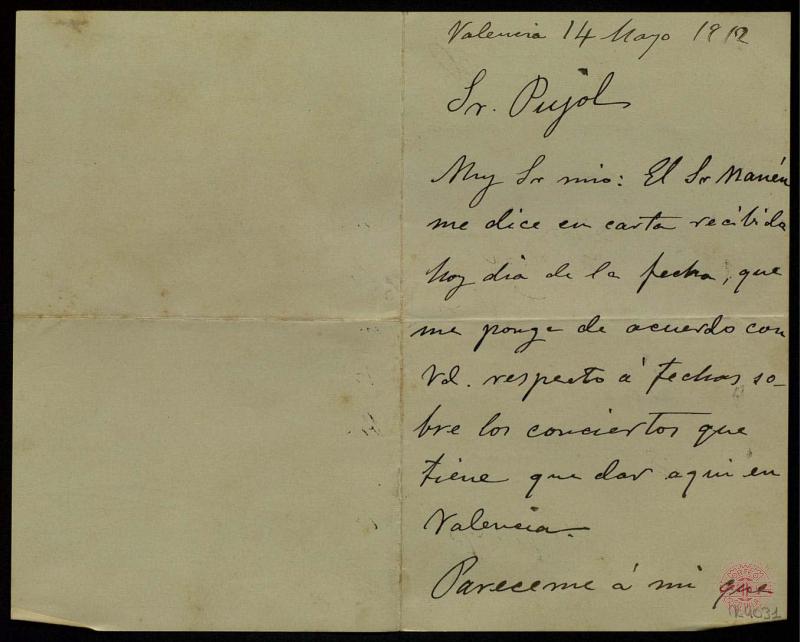 Valencia 14 Mayo 1912
Sr. Pujol
Muy Sr mio: El Sr Manén
me dice en carta recibida
hoy dia de la fecha, que
me ponga de acuerdo con
Vd. respecto á fechas so-
bre los conciertos que
tiene que dar aqui en
Valencia.
Pareceme á mi que